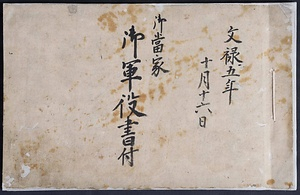 文禄五年
十月十六日
御當家
御軍役書付